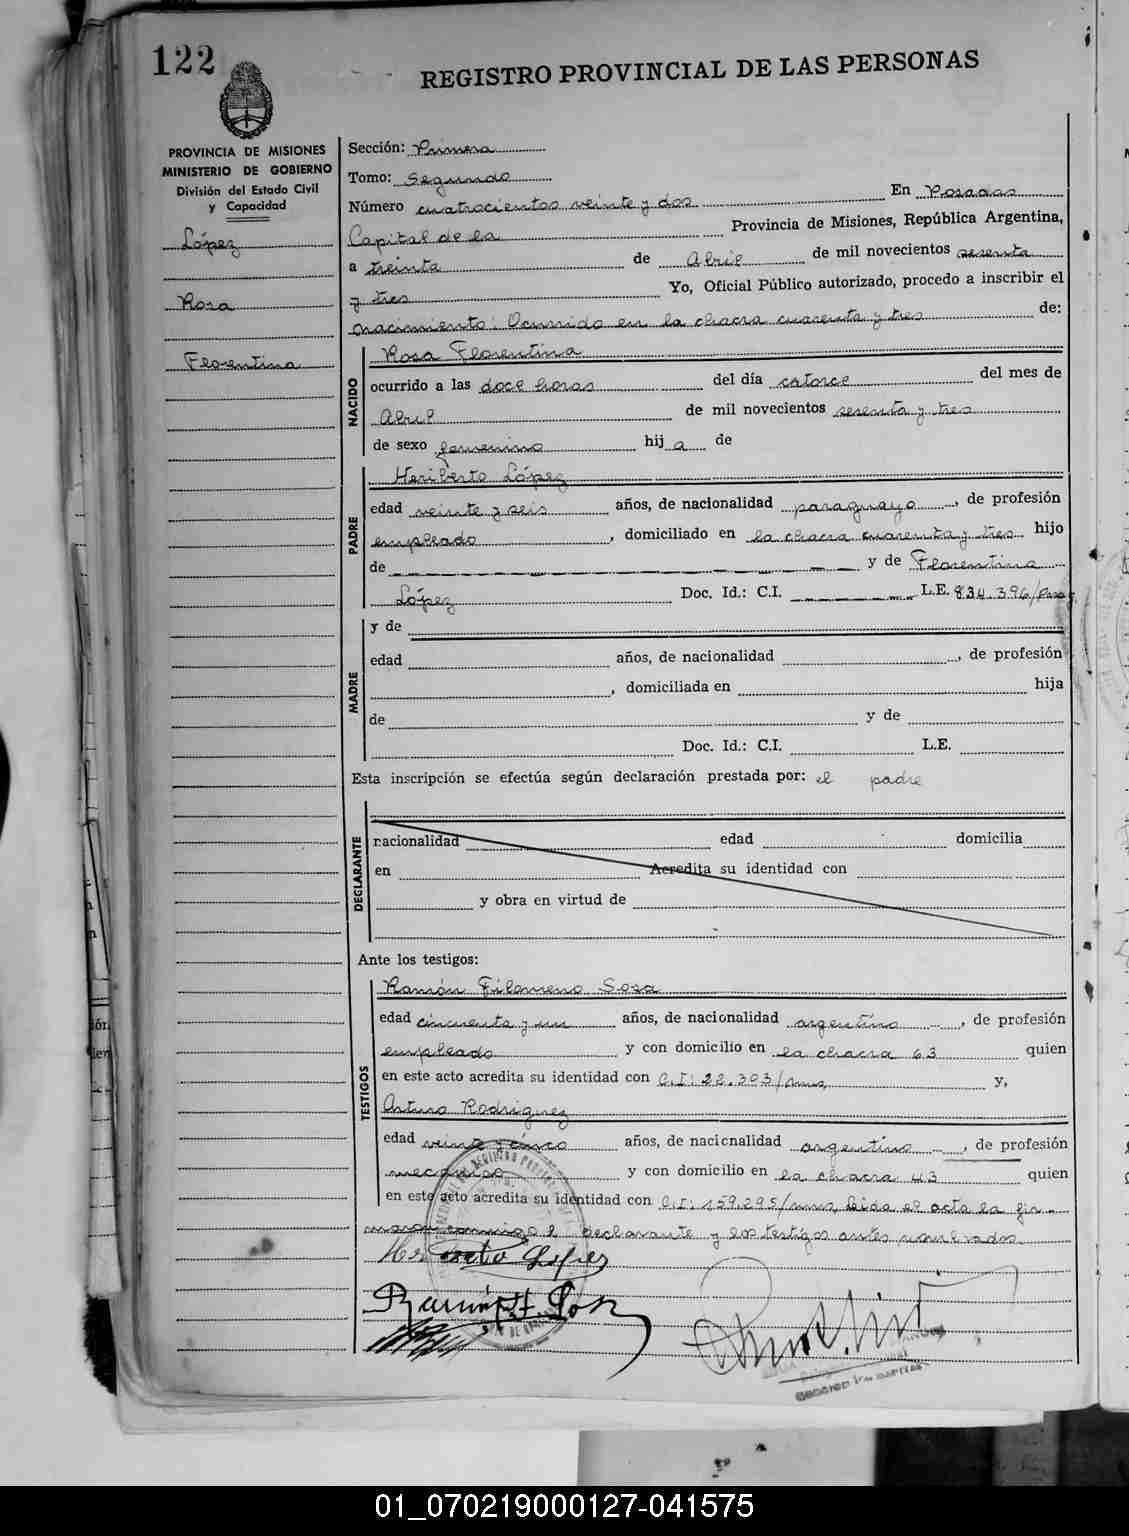 122
REGISTRO PROVINCIAL DE LAS PERSONAS
PROVINCIA DE MISIONES
MINISTERIO DE GOBIERNO
División del Estado Civil
y Capacidad
López
Rosa
Florentina
Sección: Primera
Tomo: Segundo
Número cuatrocientos veinte y dos En Posadas
Capital de la Provincia de Misiones, República Argentina,
a treinta de Abril de mil novecientos sesenta
y tres Yo, Oficial Público autorizado, procedo a inscribir el
nacimiento: Ocurrido en la chacra cuarenta y tres de:
NACIDO
Rosa Florentina
ocurrido a las doce horas del día catorce del mes de
Abril de mil novecientos sesenta y tres
de sexo femenino hij a de
PADRE
Heriberto López
edad veinte y seis años, de nacionalidad paraguayo, de profesión
empleado, domiciliado en la chacra cuarenta y tres hijo
de y de Florentina
López Doc. Id.: C.I. L.E. 834.396/Parag.
MADRE
y de
edad años, de nacionalidad , de profesión
, domiciliada en hija
de y de
Doc. Id.: C.I. L.E.
Esta inscripción se efectúa según declaración prestada por: el padre
DECLARANTE
nacionalidad edad domicilia
en Acredita su identidad con
y obra en virtud de
Ante los testigos:
TESTIGOS
Ramón Filomeno Sosa
edad cincuenta y un años, de nacionalidad argentino, de profesión
empleado y con domicilio en la chacra 63 quien
en este acto acredita su identidad con C.I: 22.303/mnes, y,
Arturo Rodriguez
edad veinte y cinco años, de nacionalidad argentino, de profesión
mecánico y con domicilio en la chacra 43 quien
en este acto acredita su identidad con C.I: 159.295/mnes, Leída el acta la fir-
maron conmigo el declarante y los testigos antes nombrados.
Heriberto Lopez
Ramón F. Sosa
01_070219000127-041575